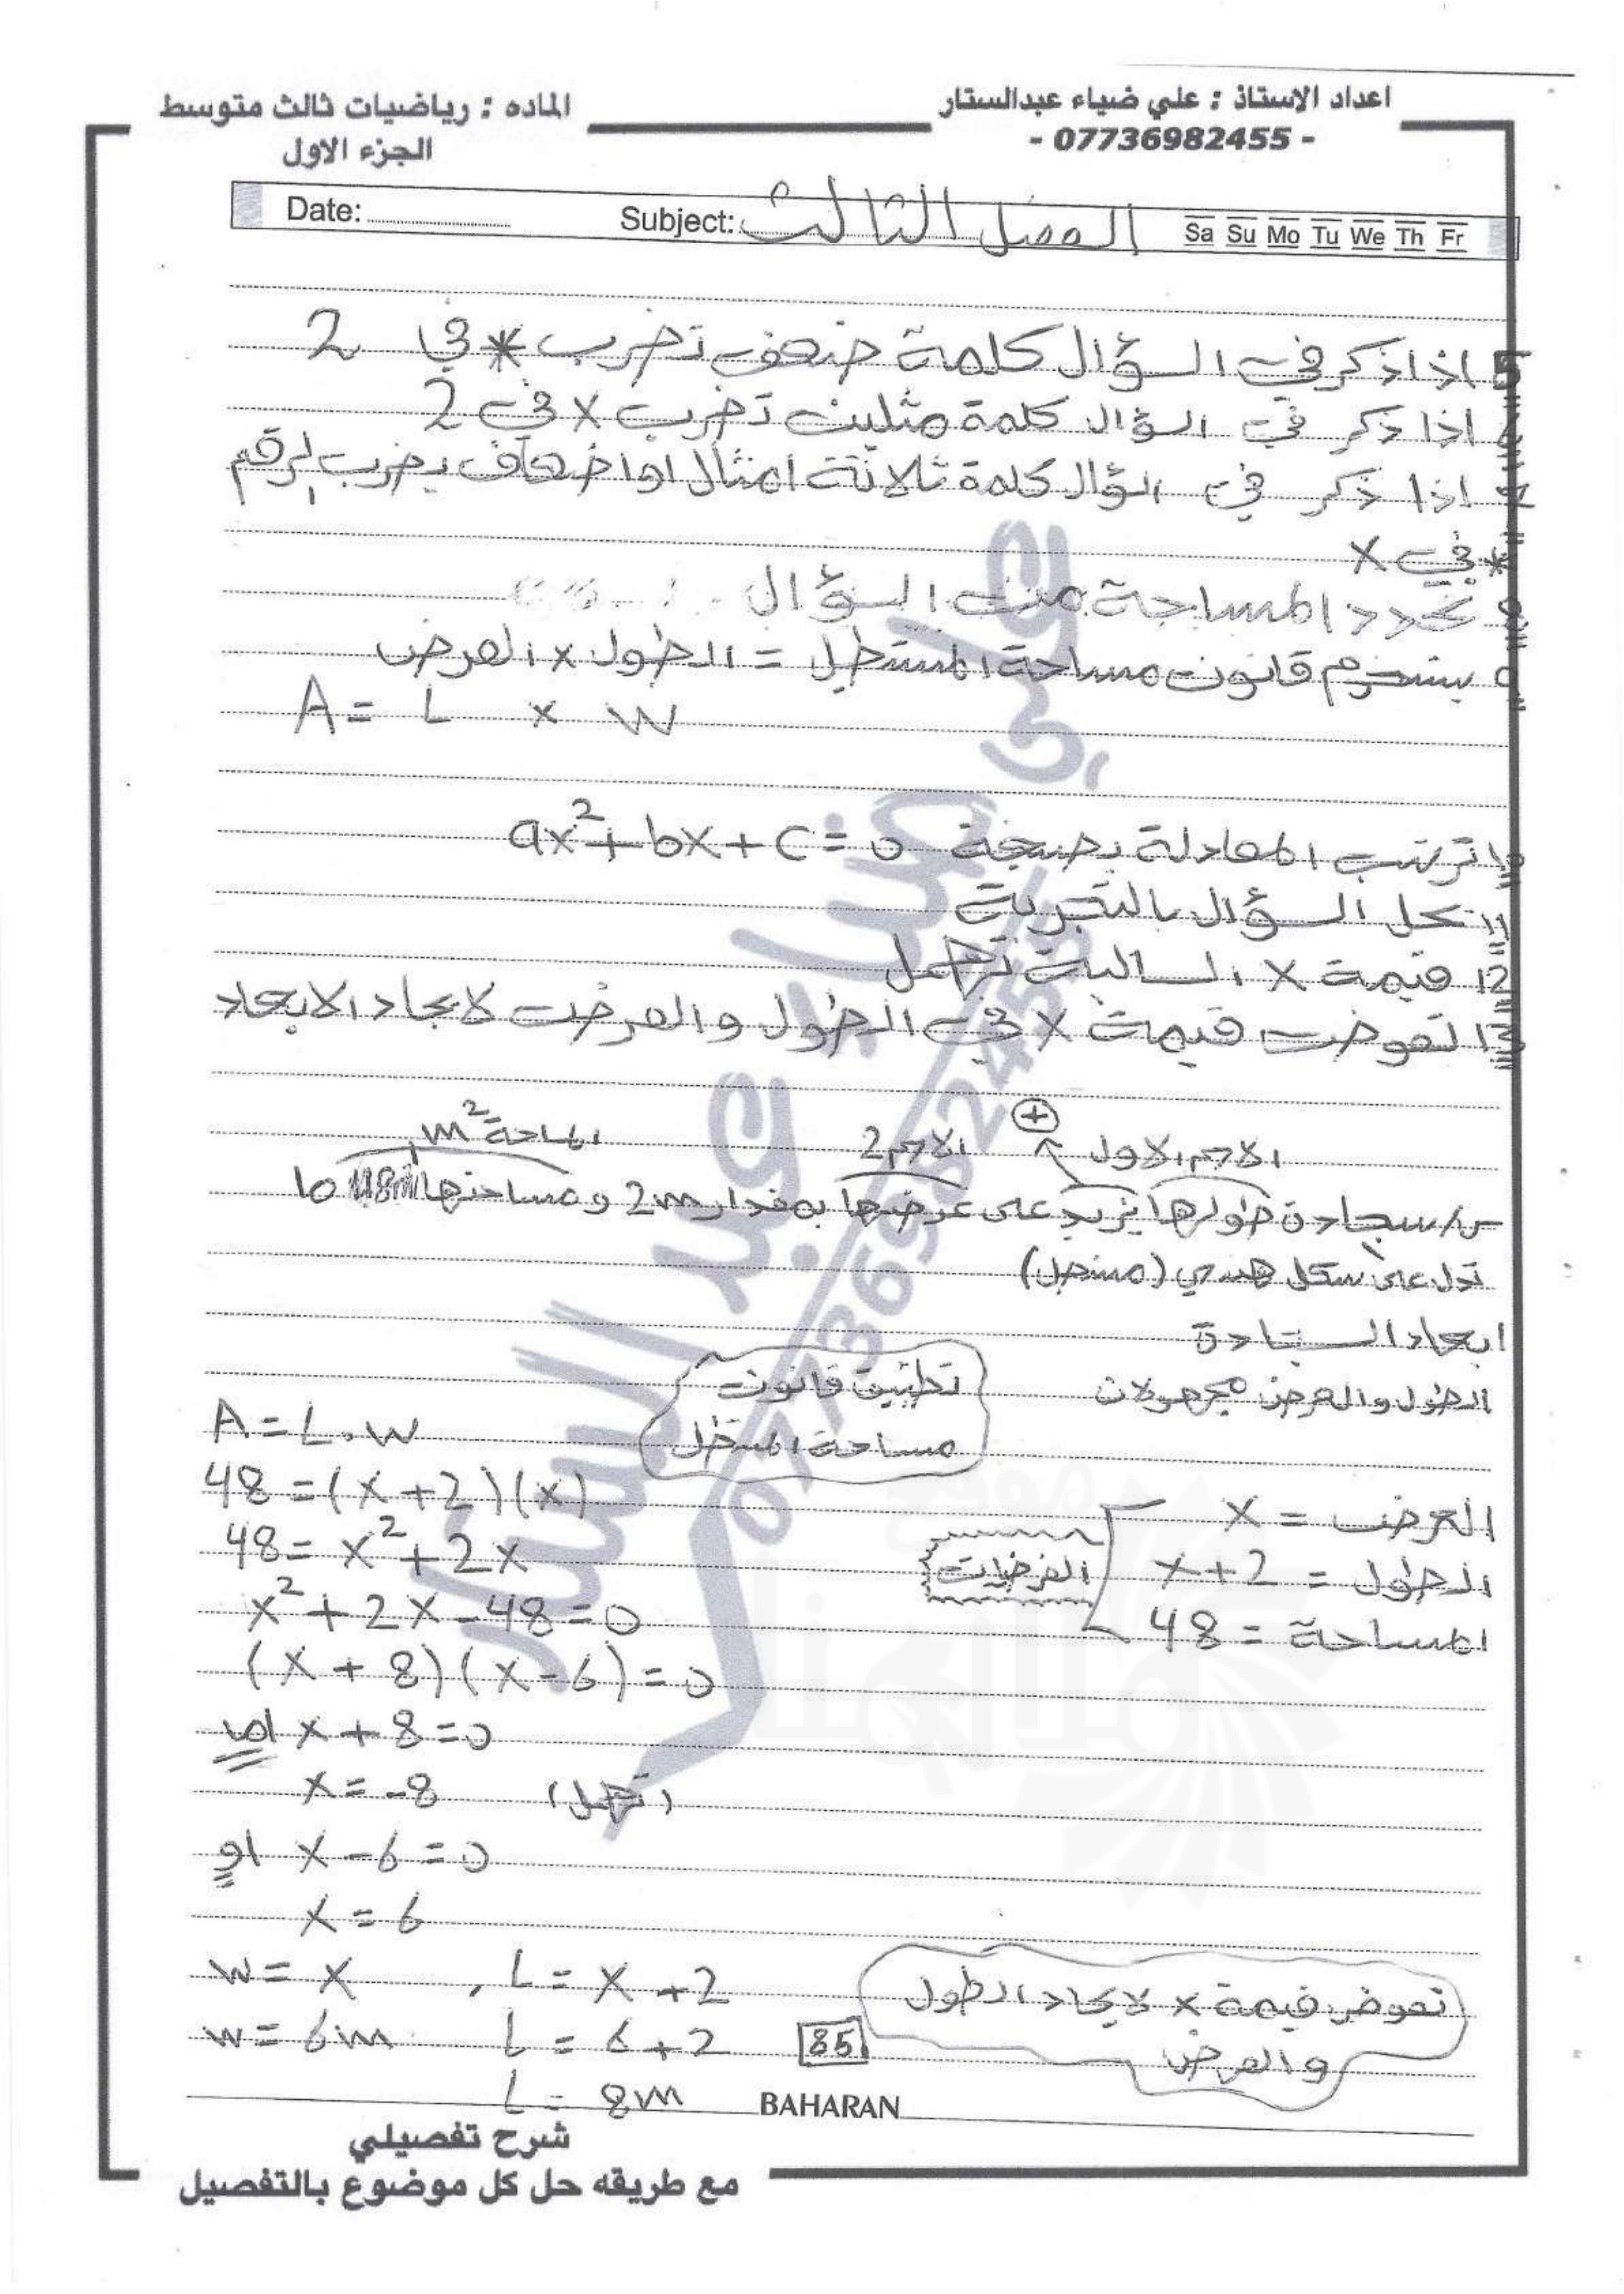 اعداد الاستاذ : علي ضياء عبدالستار
- 07736982455 -
الماده : رياضيات ثالث متوسط
الجزء الاول
Date: Subject: الفصل الثالث Sa Su Mo Tu We Th Fr
5 اذا ذكر في السؤال كلمة ضعف تضرب x في 2
6 اذا ذكر في السؤال كلمة مثلين تضرب x في 2
7 اذا ذكر في السؤال كلمة ثلاثة امثال او اضعاف يضرب الرقم
في x
8 نحدد المساحة من السؤال
9 يستخدم قانون مساحة المستطيل = الطول x العرض
A = L x W
10 ترتب المعادلة بصيغة ax²+bx+c=0
11 نحل السؤال بالتجربة
12 قيمة x السالبة تهمل
13 تعوض قيمة x في الطول والعرض لايجاد الابعاد
الاسم الاول + الاسم 2 المساحة m²
س/ سجادة طولها يزيد على عرضها بمقدار 2m ومساحتها 48m² ما
تدل على شكل هندسي (مستطيل)
ابعاد السجادة
الطول والعرض مجهولان
تطبيق قانون
مساحة المستطيل
العرض = x
الطول = x+2
المساحة = 48
الفرضيات
A = L.W
48 = (x+2)(x)
48 = x²+2x
x²+2x-48=0
(x+8)(x-6)=0
اما x+8=0
x=-8 (تهمل)
او x-6=0
x=6
w=x , L=x+2
w=6m L=6+2
L=8m
تعوض قيمة x لايجاد الطول
والعرض
85
BAHARAN
شرح تفصيلي
مع طريقه حل كل موضوع بالتفصيل
علي ضياء عبد الستار
07736982455